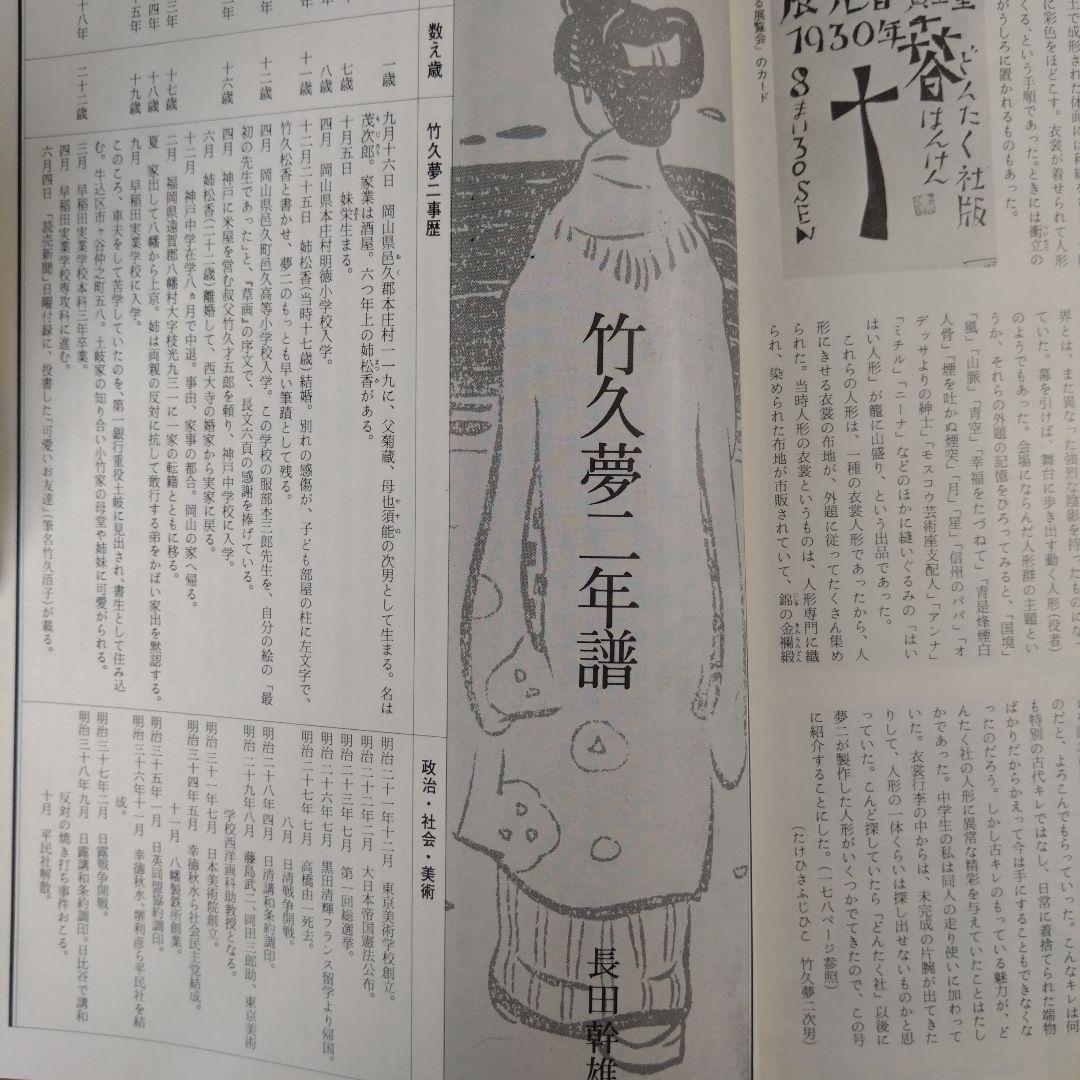 土で成形された体面に和紙
に彩色をほどこす。衣裳が着せられて人形
くる、という手順であった。ときには衝立の
がうしろに置かれるものもあった。
どんたく社版
はんけん
1930年
8まい30SEN
る展覧会」のカード
界とは、また異なった強烈な陰影を持ったものにな
ていた。幕を引けば、舞台に歩き出す動く人形(役者)
のようでもあった。会場にならんだ人形群の主題とい
うか、それらの外題の記憶をひろってみると、「国境」
「風」「山脈」「青空」「幸福をたづねて」「青是烽烟白
人骨」「煙を吐かぬ煙突」「月」「星」「信州のパパ」「オ
デッサよりの紳士」「モスコウ芸術座支配人」「アンナ」
「ミチル」「ニーナ」などのほかに縫いぐるみの「はい
はい人形」が籠に山盛り、という出品であった。
これらの人形は、一種の衣裳人形であったから、人
形にきせる衣裳の布地が、外題に従ってたくさん集め
られた。当時人形の衣裳というものは、人形専門に織
られ、染められた布地が市販されていて、錦の金襴緞
のだと、よろこんでもらった。こんなキレは何
も特別の古代キレではなし、日常に着捨てられた端物
ばかりだからかえって今は手にすることもできなくな
ったのだろう。しかし古キレのもっている魅力が、ど
んたく社の人形に異常な精彩を与えていたことはたし
かであった。中学生の私は同人の走り使いに加わって
いた。衣裳行李の中からは、未完成の片腕が出てきた
りして、人形の一体くらいは探し出せないものかと思
っていた。こんど探していたら「どんたく社」以後に
夢二が製作した人形がいくつかでてきたので、この号
に紹介することにした。(一七八ページ参照)
(たけひさふじひこ 竹久夢二次男)
竹久夢二年譜
長田幹雄
数え歳
竹久夢二事歴
政治・社会・美術
一歳
九月十六日 岡山県邑久郡本庄村一一九に、父菊蔵、母也須能の次男として生まる。名は
茂次郎。家業は酒屋。六つ年上の姉松香がある。
七歳
十月五日 妹栄生まる。
八歳
四月 岡山県本庄村明徳小学校入学。
十一歳
十二月二十五日 姉松香(当時十七歳)結婚。別れの感傷が、子ども部屋の柱に左文字で、
竹久松香と書かせ、夢二のもっとも早い筆蹟として残る。
十二歳
四月 岡山県邑久町邑久高等小学校入学。この学校の服部杢三郎先生を、自分の絵の「最
初の先生であった」と、『草画』の序文で、長文六頁の感謝を捧げている。
十六歳
四月 神戸に米屋を営む叔父竹久才五郎を頼り、神戸中学校に入学。
六月 姉松香(二十二歳)離婚して、西大寺の婚家から実家に戻る。
十二月 神戸中学在学八ヵ月で中退。事由、家事の都合。岡山の家へ帰る。
十七歳
二月 福岡県遠賀郡八幡村大字枝光九三一に一家の転籍とともに移る。
十八歳
夏 家出して八幡から上京。姉は両親の反対に抗して敢行する弟をかばい家出を黙認する。
十九歳
九月 早稲田実業学校に入学。
このころ、車夫をして苦学していたのを、第一銀行重役土岐に見出され、書生として住み込
む。牛込区市ヶ谷仲之町五八。土岐家の知り合い小竹家の母堂や姉妹に可愛がられる。
二十二歳
三月 早稲田実業学校本科三年卒業。
四月 早稲田実業学校専攻科に進む。
六月四日 「読売新聞」日曜付録に、投書した「可愛いお友達」(筆名竹久泊子)が載る。
明治二十一年十二月 東京美術学校創立。
明治二十二年二月 大日本帝国憲法公布。
明治二十三年七月 第一回総選挙。
明治二十六年七月 黒田清輝フランス留学より帰国。
明治二十七年七月 高橋由一死去。
八月 日清戦争開戦。
明治二十八年四月 日清講和条約調印。
明治二十九年八月 藤島武二、岡田三郎助、東京美術
学校西洋画科助教授となる。
明治三十一年七月 日本美術院創立。
明治三十四年五月 幸徳秋水ら社会民主党結成。
十一月 八幡製鉄所創業。
明治三十五年一月 日英同盟協約調印。
明治三十六年十一月 幸徳秋水、堺利彦ら平民社を結
成。
明治三十七年二月 日露戦争開戦。
明治三十八年九月 日露講和条約調印。日比谷で講和
反対の焼き打ち事件おこる。
十月 平民社解散。